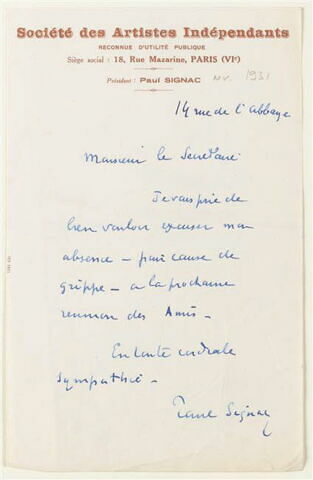 Société des Artistes Indépendants
RECONNUE D'UTILITÉ PUBLIQUE
Siège social : 18, Rue Mazarine, PARIS (VIᵉ)
Président : Paul SIGNAC
1931
14 rue de l'abbaye
Monsieur le Secrétaire
Je vous prie de
bien vouloir excuser mon
absence – pour cause de
grippe – a la prochaine
reunion des Amis –
En toute cordiale
sympathie –
Paul Signac